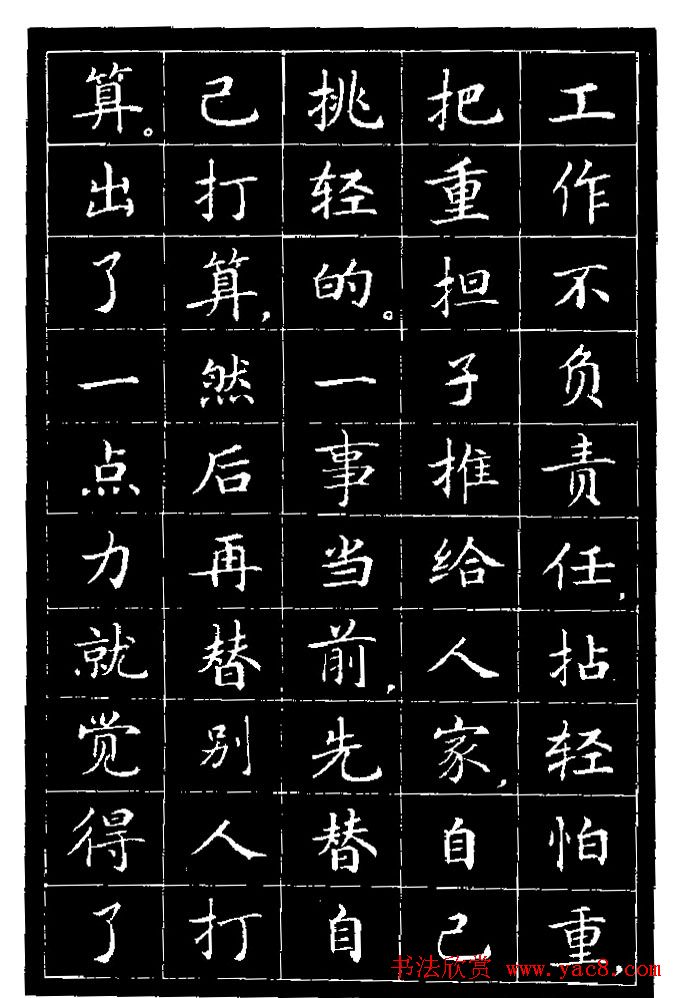 工作不负责任,拈轻怕重,
把重担子推给人家,自己
挑轻的。一事当前,先替自
己打算,然后再替别人打
算。出了一点力就觉得了
书法欣赏 www.yac8.com